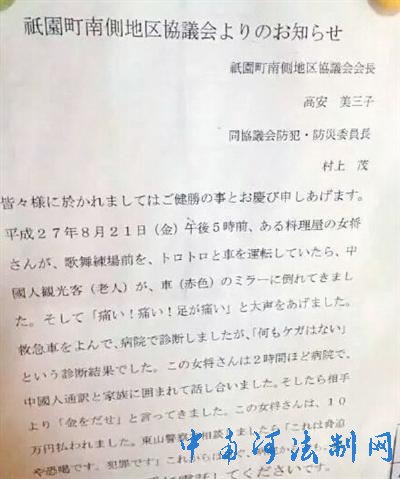 祇園町南側地区協議会よりのお知らせ
祇園町南側地区協議会会長
高安 美三子
同協議会防犯・防災委員長
村上 茂
皆々様に於かれましてはご健勝の事とお慶び申しあげます。
平成27年8月21日(金)午後5時前、ある料理屋の女将
さんが、歌舞練場前を、トロトロと車を運転していたら、中
國人観光客(老人)が、車(赤色)のミラーに倒れてきまし
た。そして「痛い!痛い!足が痛い」と大声をあげました。
救急車をよんで、病院で診断しましたが、「何もケガはない」
という診断結果でした。この女将さんは2時間ほど病院で、
中國人通訳と家族に囲まれて話し合いました。そしたら相手
より「金をだせ」と言ってきました。この女将さんは、10
万円払われました。東山警察 相談 ましたら「これは脅迫
や恐喝です。犯罪です」これからは
に電話してくださいです。
中南河法制网